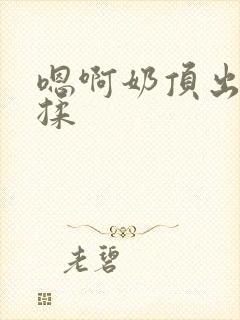 嗯啊奶頂出
揉
老碧